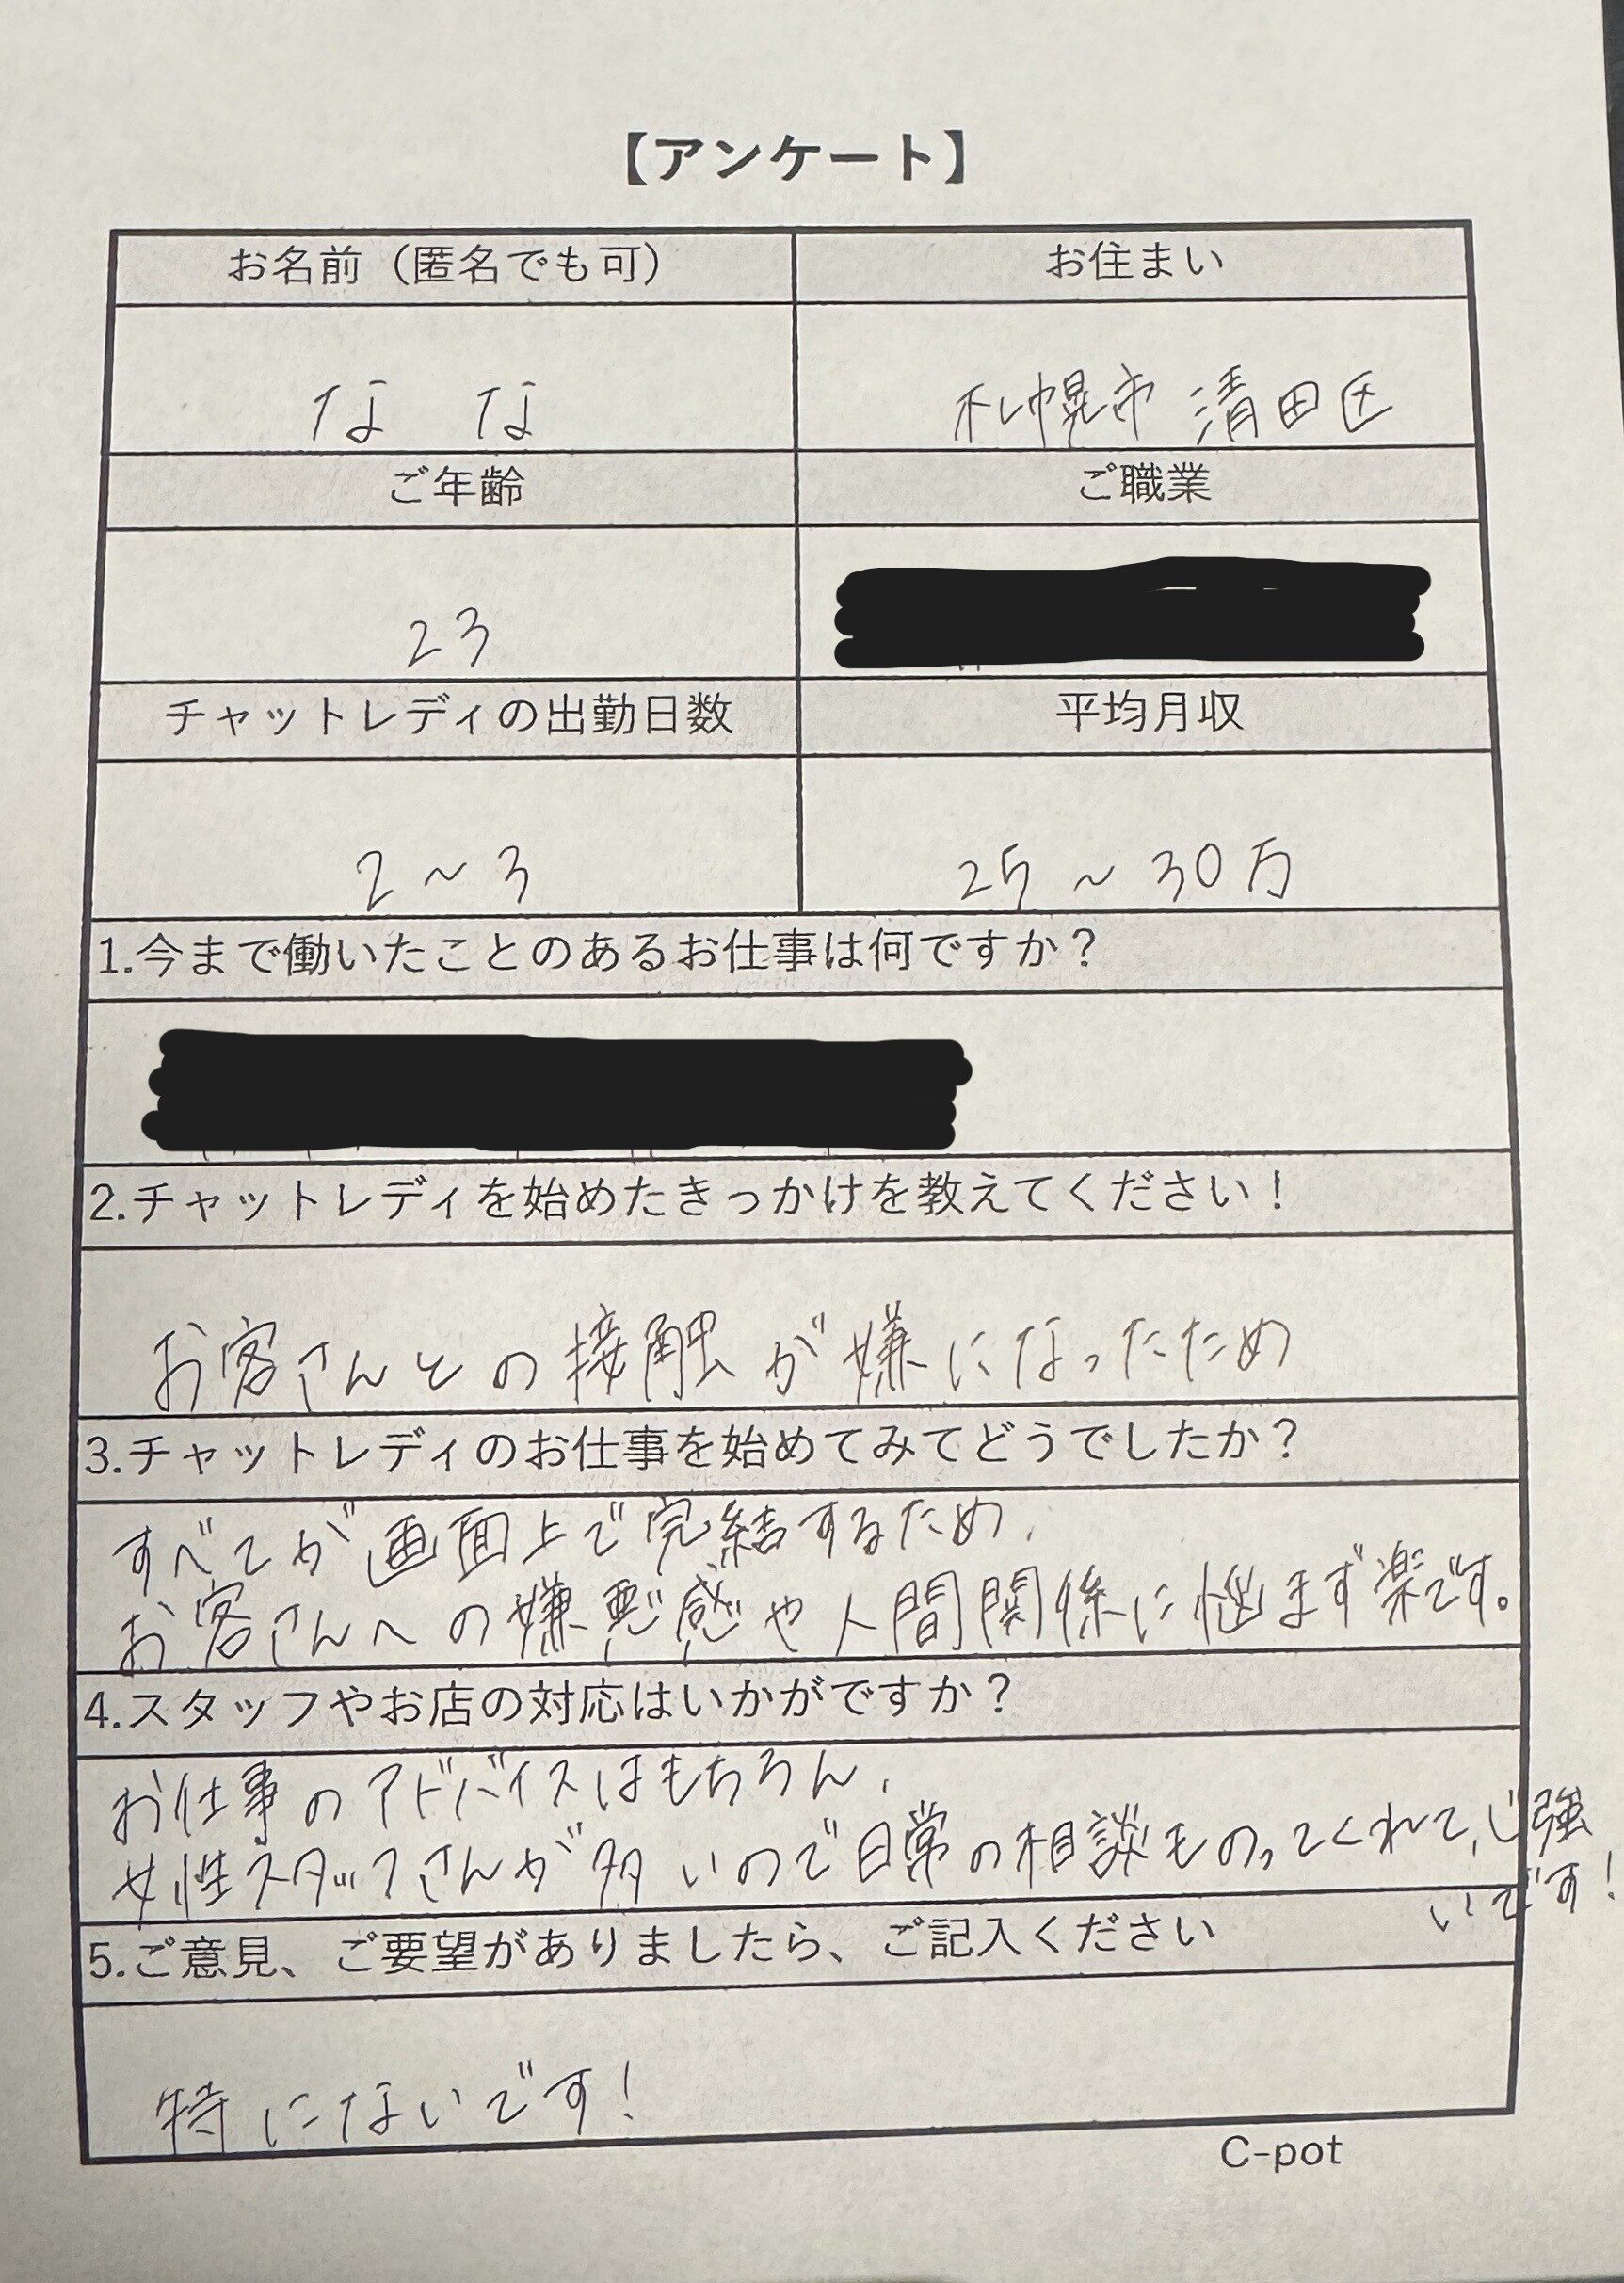 【アンケート】
お名前（匿名でも可） お住まい
なな 札幌市 清田区
ご年齢 ご職業
23
チャットレディの出勤日数 平均月収
2～3 25～30万
1.今まで働いたことのあるお仕事は何ですか？
2.チャットレディを始めたきっかけを教えてください！
お客さんとの接触が嫌になったため
3.チャットレディのお仕事を始めてみてどうでしたか？
すべてが画面上で完結するため、
お客さんへの嫌悪感や人間関係に悩まず楽です。
4.スタッフやお店の対応はいかがですか？
お仕事のアドバイスはもちろん、
女性スタッフさんが多いので日常の相談ものってくれて、心強
いです！
5.ご意見、ご要望がありましたら、ご記入ください
特にないです！
C-pot